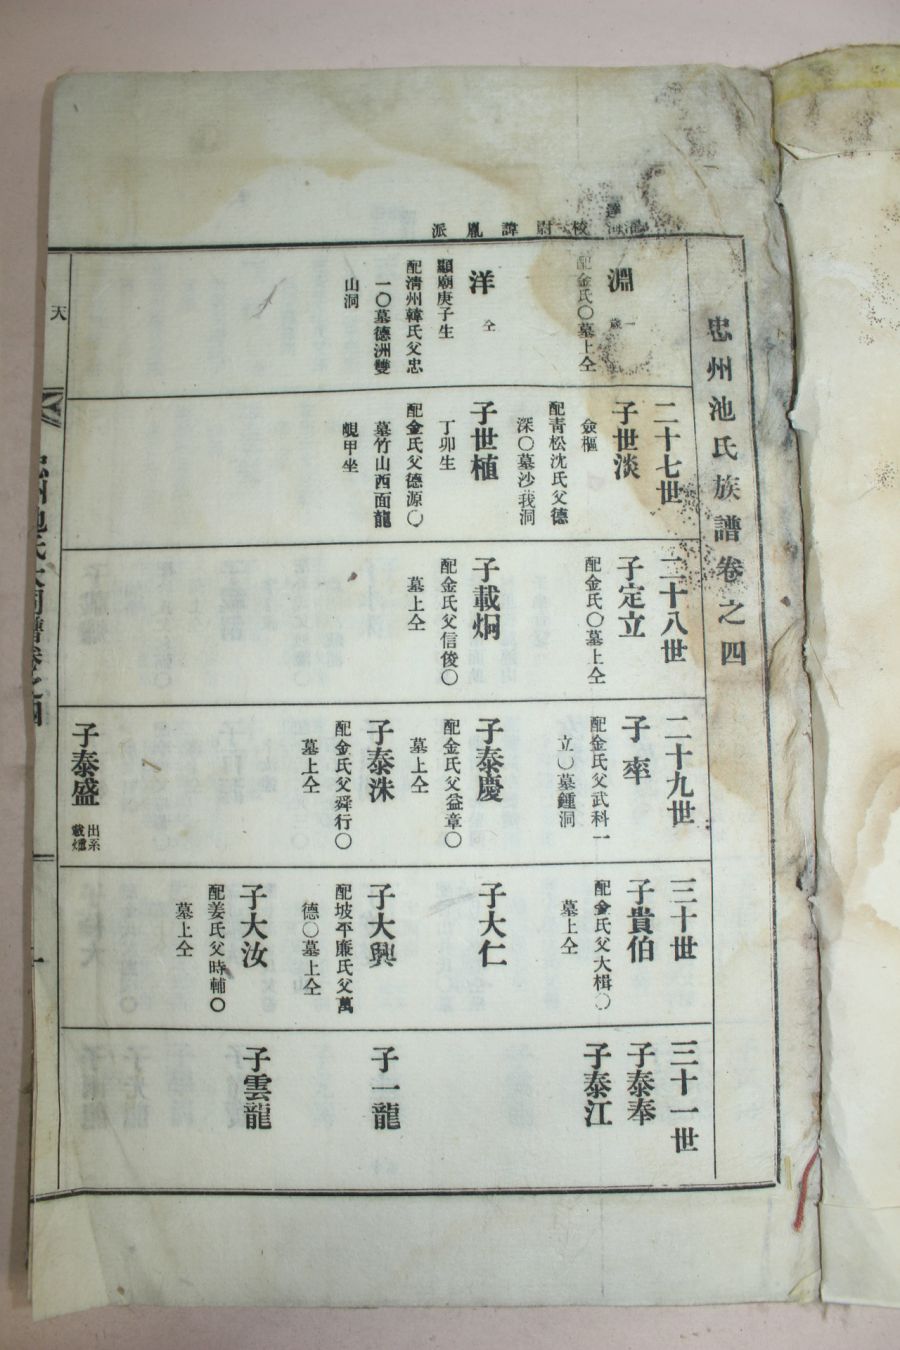 忠州池氏族譜卷之四
校尉諱胤派
淵
配金氏〇墓上仝
洋
仝
顯廟庚子生
配淸州韓氏父忠
一〇墓德洲雙
山洞
二十七世
子世淡
僉樞
配靑松沈氏父德
深〇墓沙我洞
子世植
丁卯生
配金氏父德源〇
墓竹山西面龍
峴甲坐
二十八世
子定立
配金氏〇墓上仝
子載炯
配金氏父信俊〇
墓上仝
二十九世
子㴍
配金氏父武科一
立〇墓鍾洞
子泰慶
配金氏父益章〇
墓上仝
子泰洙
配金氏父舜行〇
墓上仝
子泰盛
出系
三十世
子貴伯
配金氏父大楫〇
墓上仝
子大仁
子大興
配坡平廉氏父萬
德〇墓上仝
子大汝
配姜氏父時輔〇
墓上仝
三十一世
子泰奉
子泰江
子一龍
子雲龍
天